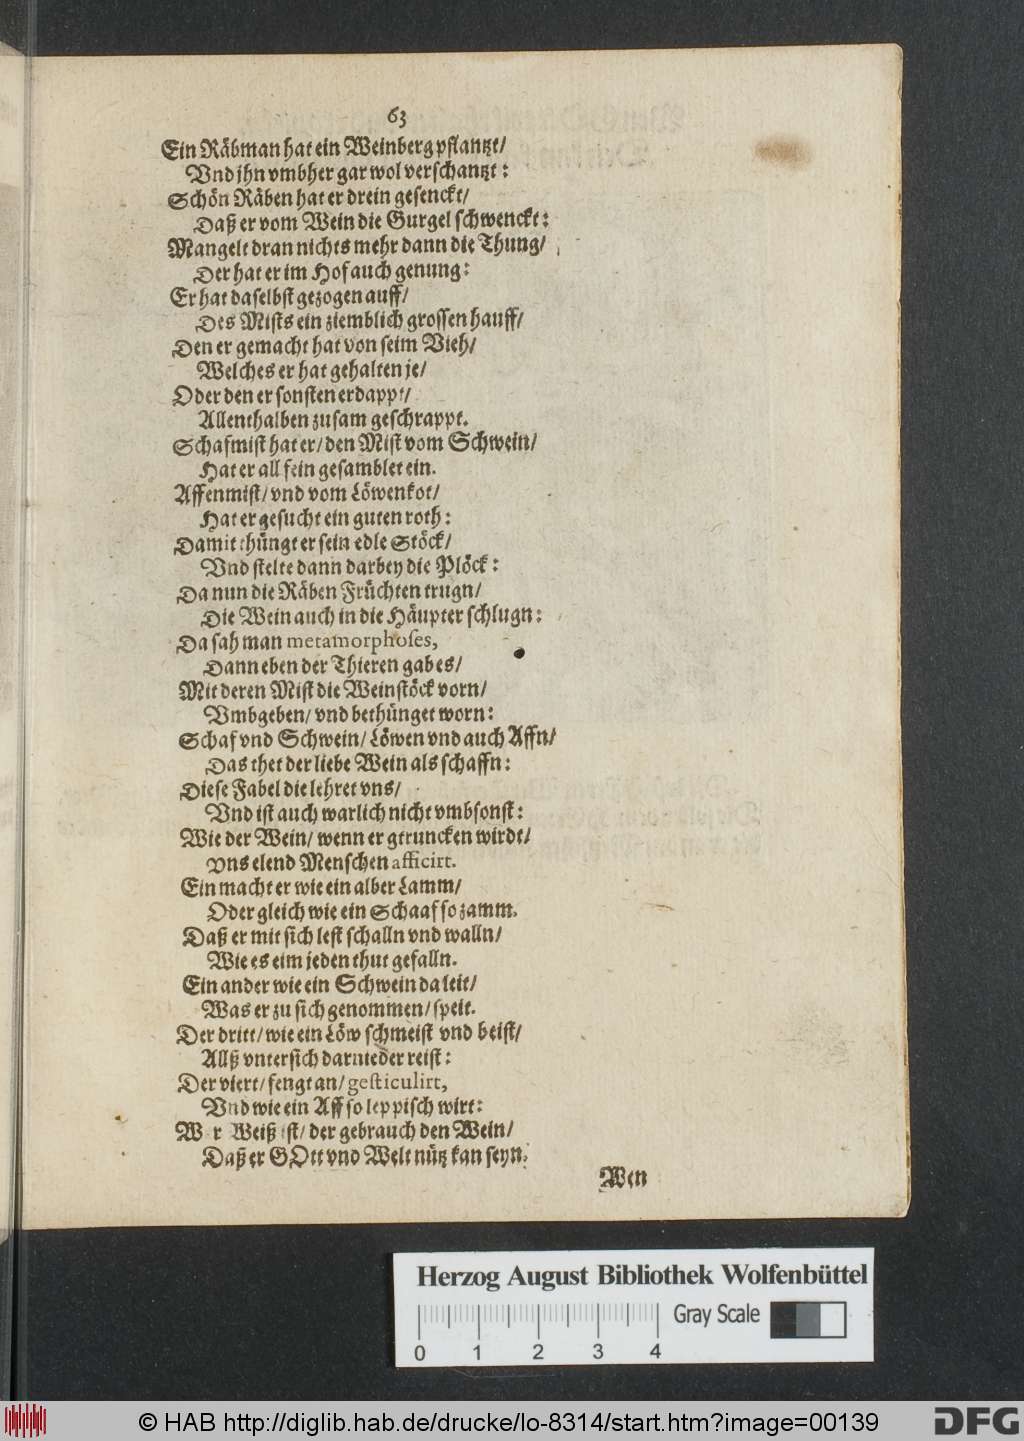 63
Ein Räbman hat ein Weinberg pflantzt/
Vnd jhn vmbher gar wol verschantzt:
Schön Räben hat er drein gesenckt/
Daß er vom Wein die Gurgel schwenckt:
Mangelt dran nichts mehr dann die Thung/
Der hat er im Hof auch genung:
Er hat daselbst gezogen auff/
Des Mists ein ziemblich grossen hauff/
Den er gemacht hat von seim Vieh/
Welches er hat gehalten je/
Oder den er sonsten erdappt/
Allenthalben zusam geschrappt.
Schafmist hat er/ den Mist vom Schwein/
Hat er all fein gesamblet ein.
Affenmist/ vnd vom Löwenkot/
Hat er gesucht ein guten roth:
Damit thüngt er sein edle Stöck/
Vnd stelte dann darbey die Plöck:
Da nun die Räben Früchten trugn/
Die Wein auch in die Häupter schlugn:
Da sah man metamorphoses,
Dann eben der Thieren gab es/
Mit deren Mist die Weinstöck vorn/
Vmbgeben/ vnd bethünget worn:
Schaf vnd Schwein/ Löwen vnd auch Affn/
Das thet der liebe Wein als schaffn:
Diese Fabel die lehret vns/
Vnd ist auch warlich nicht vmbsonst:
Wie der Wein/ wenn er getruncken wirdt/
Vns elend Menschen afficirt.
Ein macht er wie ein alber Lamm/
Oder gleich wie ein Schaaf so zamm.
Daß er mit sich lest schalln vnd walln/
Wie es eim jeden thut gefalln.
Ein ander wie ein Schwein da leit/
Was er zu sich genommen/ speit.
Der dritt/ wie ein Löw schmeist vnd beist/
Allß vntersich darnieder reist:
Der viert/ fengt an/ gesticulirt,
Vnd wie ein Aff so leppisch wirt:
Wer Weiß ist/ der gebrauch den Wein/
Daß er GOtt vnd Welt nütz kan seyn.
Wen
Herzog August Bibliothek Wolfenbüttel
Gray Scale
0 1 2 3 4
© HAB http://diglib.hab.de/drucke/lo-8314/start.htm?image=00139
DFG